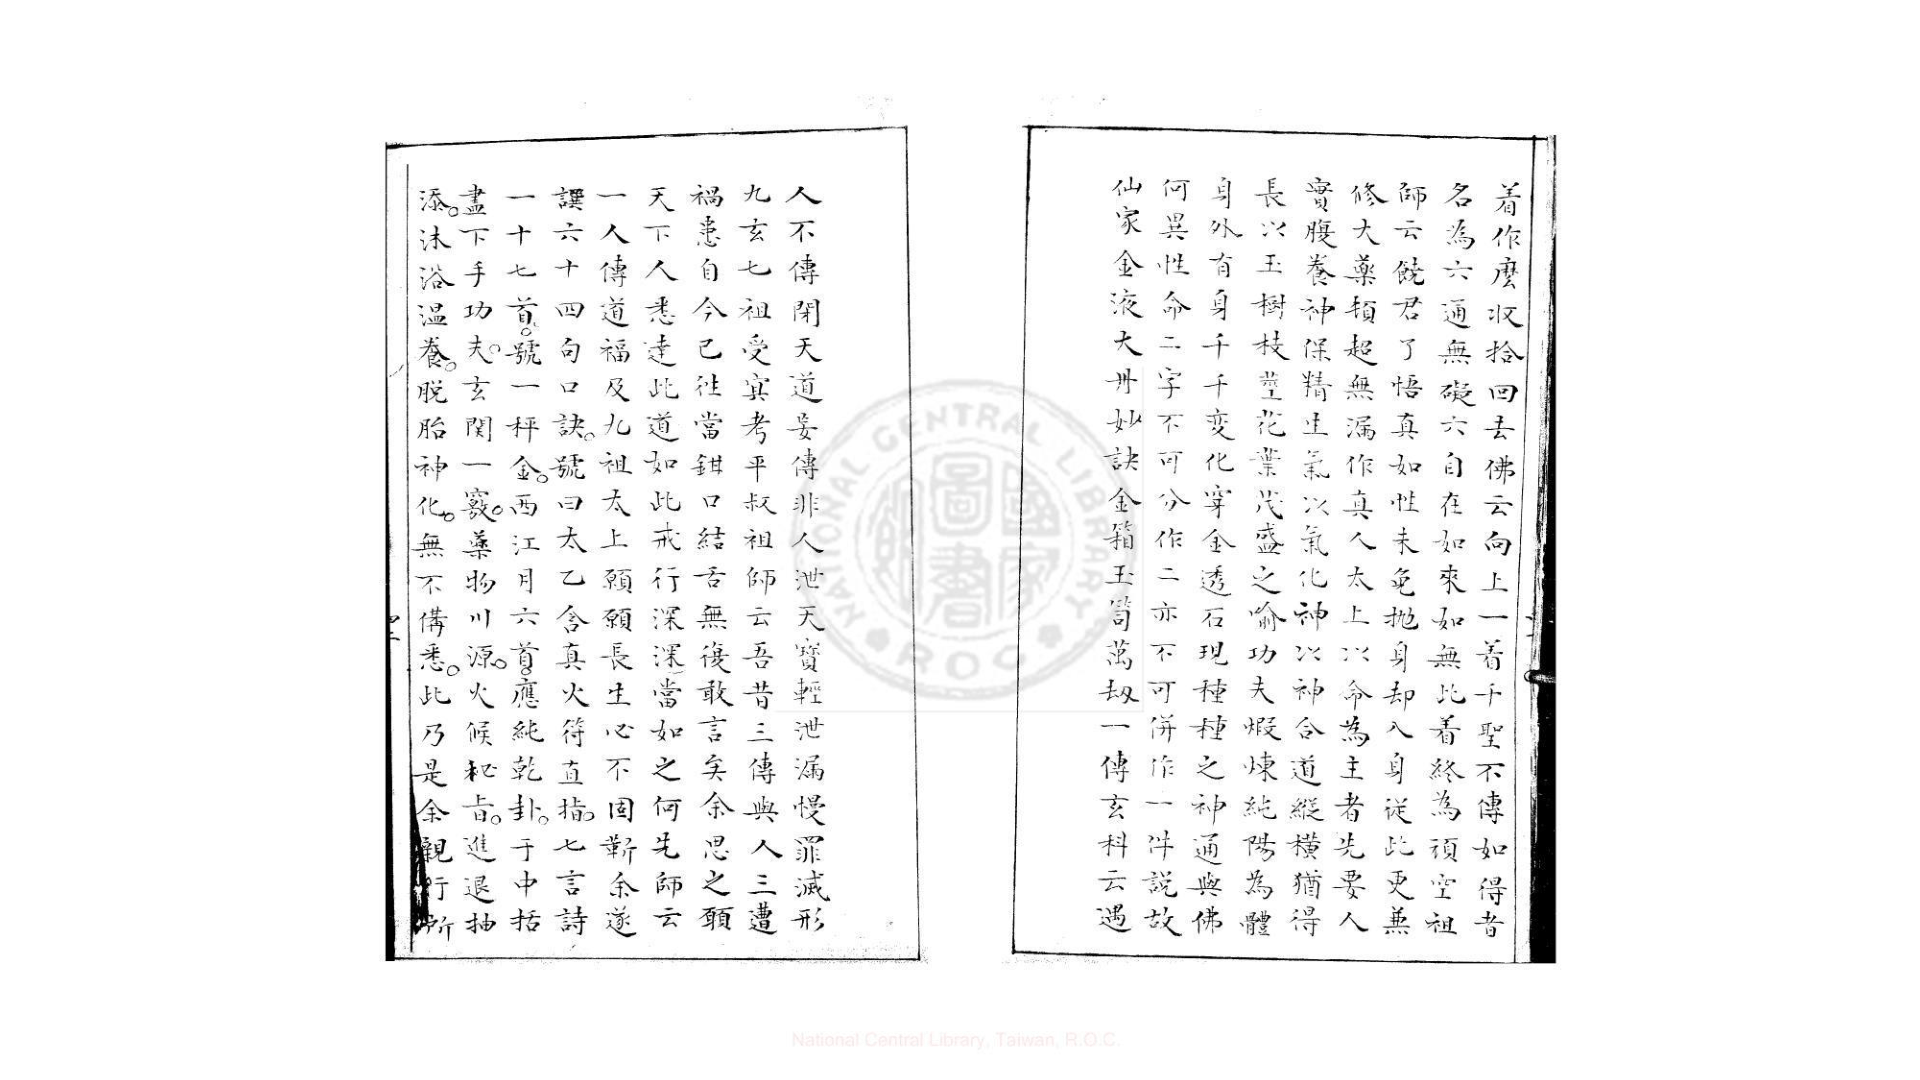 着作麽收拾回去佛云向上一着千聖不傳如得者
名為六通無礙六自在如來如無此着終為頑空祖
師云饒君了悟真如性未免抛身却入身從此更兼
修大藥頓超無漏作真人太上以命為主者先要人
實腹養神保精生氣以氣化神以神合道縱橫猶得
長以玉樹枝莖花葉茂盛之喻功夫煆煉純陽為體
身外有身千千变化穿金透石現種種之神通與佛
何異性命二字不可分作二亦不可併作一件説故
仙家金液大丹妙訣金箱玉笥萬刼一傳玄科云遇
人不傳閉天道妄傳非人泄天寶輕泄漏慢罪滅形
九玄七祖受寘考平叔祖師云吾昔三傳與人三遭
禍患自今已徃當鉗口結舌無復敢言矣余思之願
天下人悉達此道如此戒行深深當如之何先師云
一人傳道福及九祖太上願願長生心不固靳余遂
譔六十四句口訣。號曰太乙含真火符直指。七言詩
一十七首。號一秤金。西江月六首。應純乾卦。于中括
盡下手功夫。玄関一竅。藥物川源。火候秘旨。進退抽
添。沐浴温養。脱胎神化。無不俻悉。此乃是余親行所
National Central Library, Taiwan, R.O.C.
NATIONAL CENTRAL LIBRARY
ROC
國家圖書館